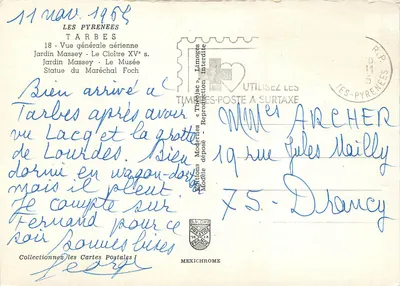 11 nov. 1965
LES PYRENEES
TARBES
18 - Vue générale aérienne
Jardin Massey - Le Cloître XVe s.
Jardin Massey - Le Musée
Statue du Maréchal Foch
Bien arrivé à
Tarbes après avoir
vu Lacq et la grotte
de Lourdes. Bien
dormi en wagon-
mais il pleut.
Je compte sur
Fernand pour ce
soir bonnes bises
George
Collectionnez les Cartes Postales !
Editions Modernes "Théojac", Limoges
Reproduction interdite
Modèle déposé
MEXICHROME
UTILISEZ LES
TIMBRES-POSTE A SURTAXE
R.P.
TES-PYRENEES
Mmes ARCHER
19 rue Jules Mailly
75 - Drancy